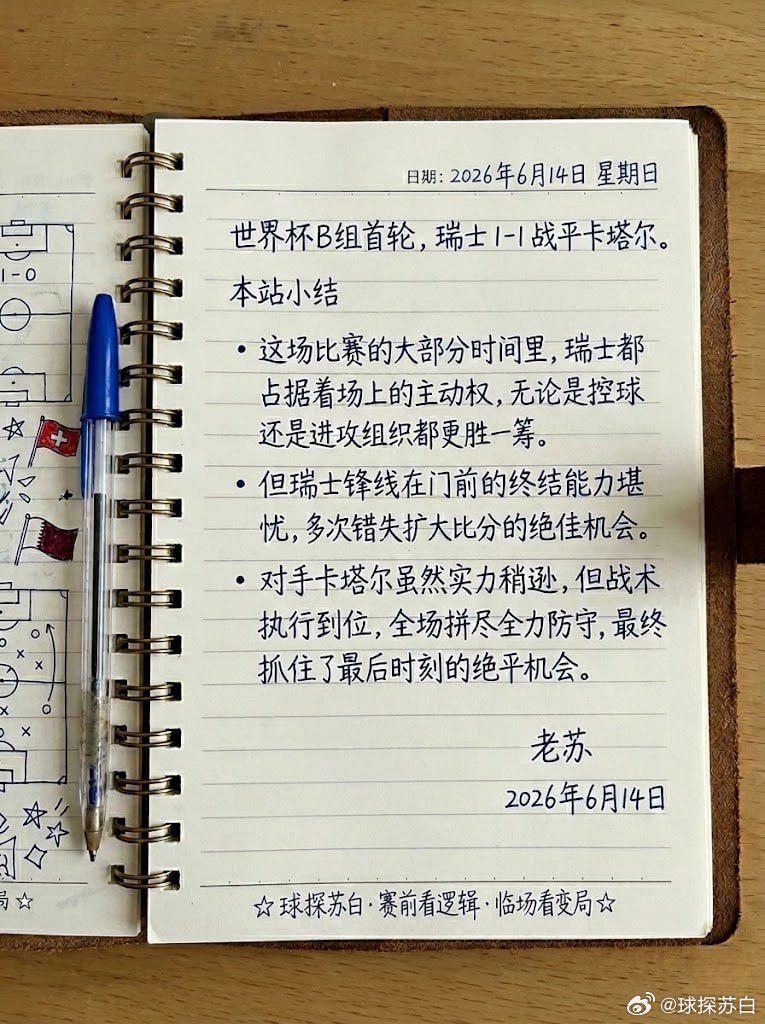 日期: 2026年6月14日 星期日
世界杯B组首轮，瑞士1-1战平卡塔尔。
本站小结
• 这场比赛的大部分时间里，瑞士都
占据着场上的主动权，无论是控球
还是进攻组织都更胜一筹。
• 但瑞士锋线在门前的终结能力堪
忧，多次错失扩大比分的绝佳机会。
• 对手卡塔尔虽然实力稍逊，但战术
执行到位，全场拼尽全力防守，最终
抓住了最后时刻的绝平机会。
老苏
2026年6月14日
☆球探苏白·赛前看逻辑·临场看变局☆
1-0
局☆
@球探苏白